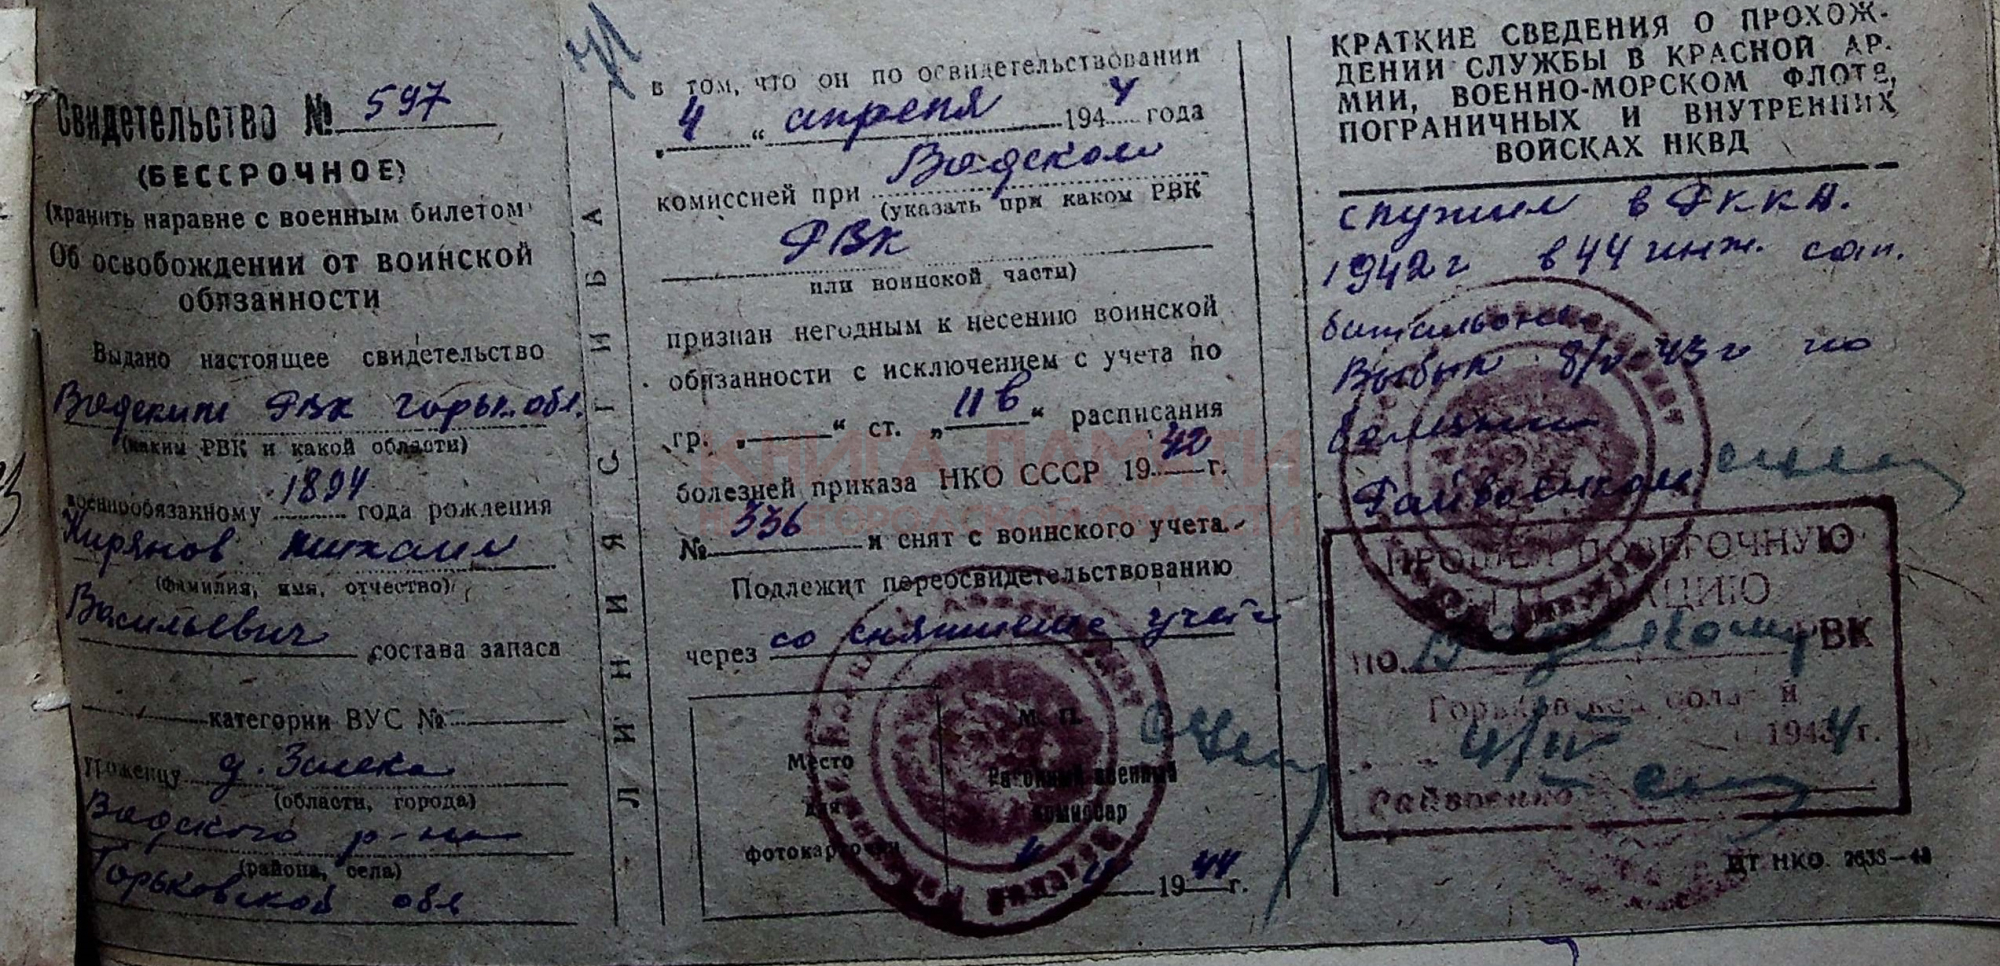 Свидетельство № 597
(БЕССРОЧНОЕ)
(хранить наравне с военным билетом)
Об освобождении от воинской
обязанности
Выдано настоящее свидетельство
Вадским РВК Горьк. обл.
(каким РВК и какой области)
военнообязанному 1894 года рождения
Кирянов Михаил
(фамилия, имя, отчество)
Васильевич состава запаса
категории ВУС №
Уроженцу д. Засека
(области, города)
Вадского р-на
(района, села)
Горьковской обл
ЛИНИЯ СГИБА
в том, что он по освидетельствовании
„4“ апреля 1944 года
комиссией при Вадском
(указать при каком РВК
РВК
или воинской части)
признан негодным к несению воинской
обязанности с исключением с учета по
гр. „ “ ст. „11 в“ расписания
болезней приказа НКО СССР 1942 г.
№ 336 и снят с воинского учета.
Подлежит переосвидетельствованию
через со снятием учета
Место
для
фотокарточки
М. П.
Районный военный
комиссар
1944 г.
КРАТКИЕ СВЕДЕНИЯ О ПРОХОЖ-
ДЕНИИ СЛУЖБЫ В КРАСНОЙ АР-
МИИ, ВОЕННО-МОРСКОМ ФЛОТЕ,
ПОГРАНИЧНЫХ И ВНУТРЕННИХ
ВОЙСКАХ НКВД
служил в РККА.
1942 г в 44 инж. сап.
батальоне
Выбыл 43 г по
болезни
Райвоенком
ПРОШЕЛ ПОВЕРОЧНУЮ
РЕГИСТРАЦИЮ
по. Вадскому РВК
Горьковской области
4/IV 1944 г.
Райвоенком
ЦТ НКО. 2638—43
КНИГА ПАМЯТИ
НИЖЕГОРОДСКОЙ ОБЛАСТИ